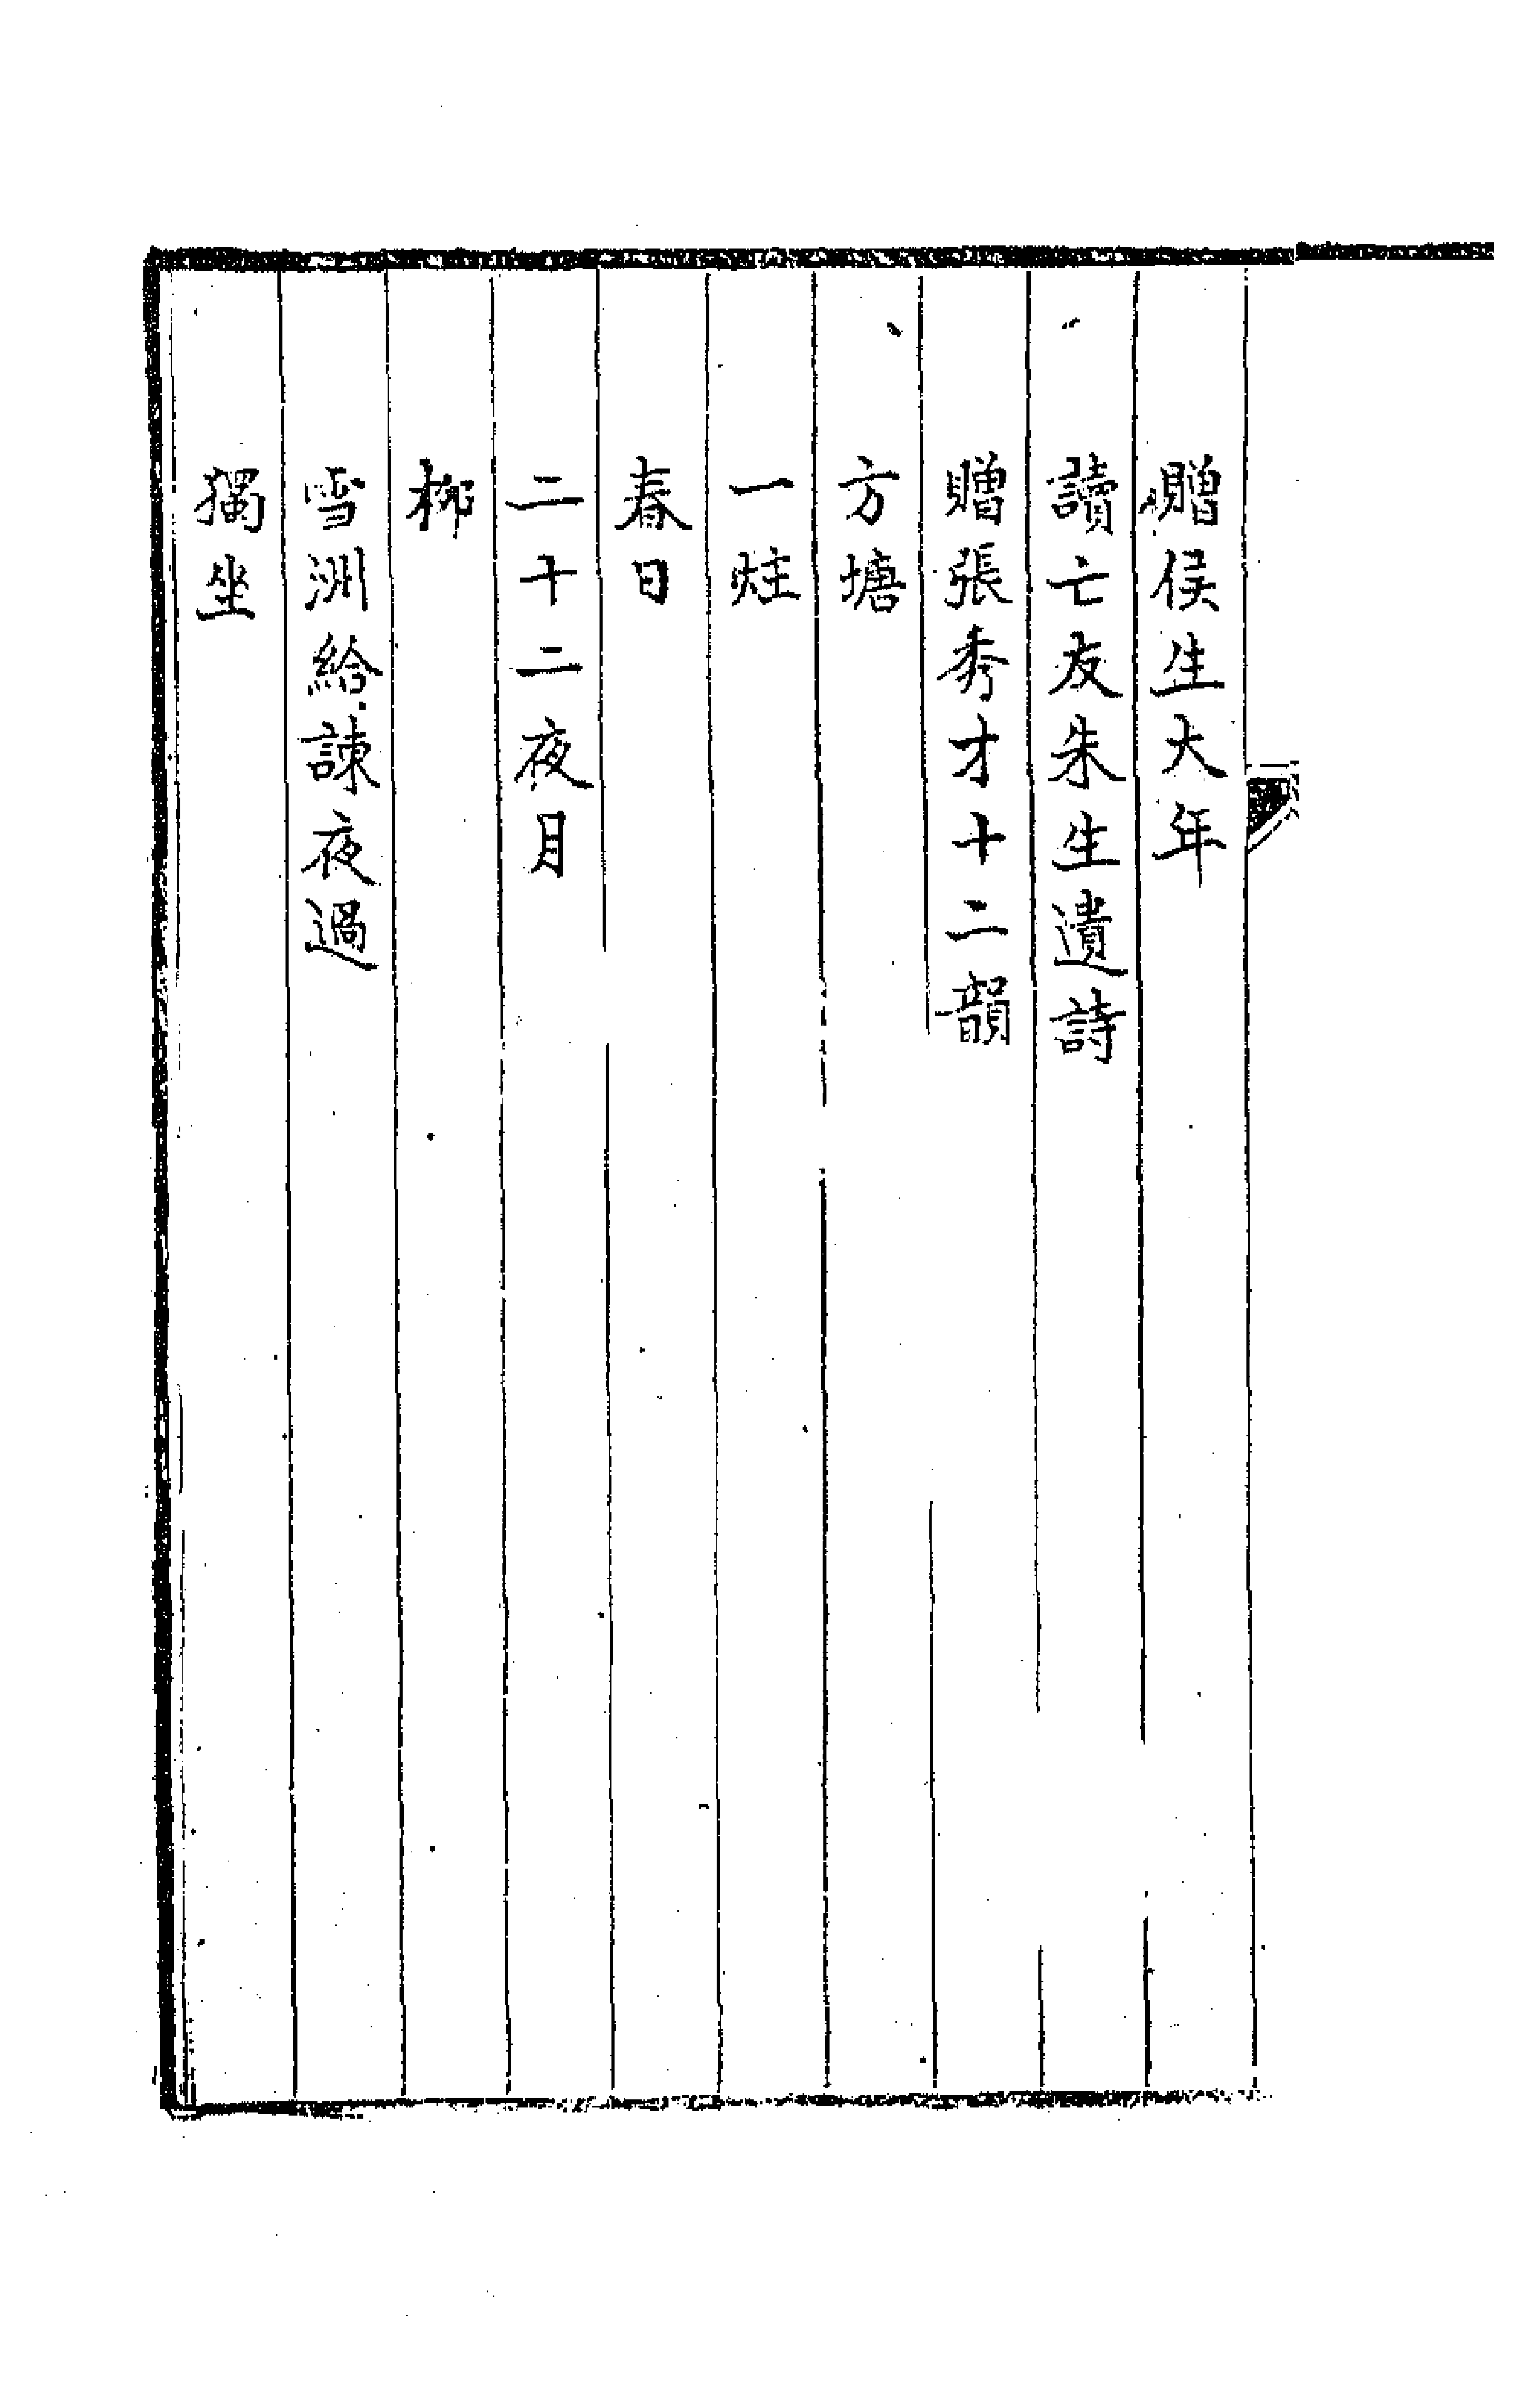 贈侯生大年
讀亡友朱生遺詩
贈張秀才十二韻
方塘
一炷
春日
二十二夜月
柳
雪洲給諫夜過
獨坐